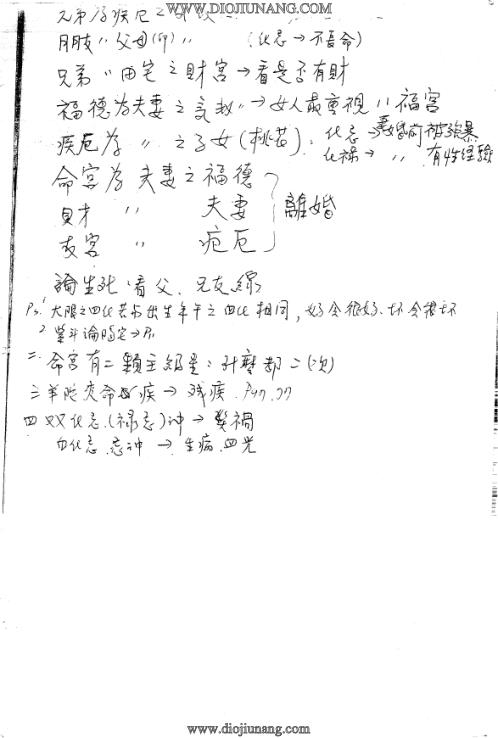 WWW.DIOJIUNANG.COM
兄弟為疾厄之
朋友〃父母(命)〃 (化忌→不長命)
兄弟〃田宅之財宮→看是否有財
福德為夫妻之 〃→女人最重視〃福宮
疾厄為〃之子女(桃花): 化忌→婚前被強暴
化祿→〃有性經驗
命宮為夫妻之福德
財〃夫妻 離婚
友宮〃疾厄
論生死,看父、兄友線
Ps.1 大限之四化若與出生年干之四化相同,好会很好、坏会很坏
2 紫斗論陽宅→
二. 命宮有二顆主組星:什麼都二(次)
三 羊陀夾命 疾→残疾.
四 双化忌.(祿忌)冲→
自化忌.忌冲→生病.血光
www.diojiunang.com